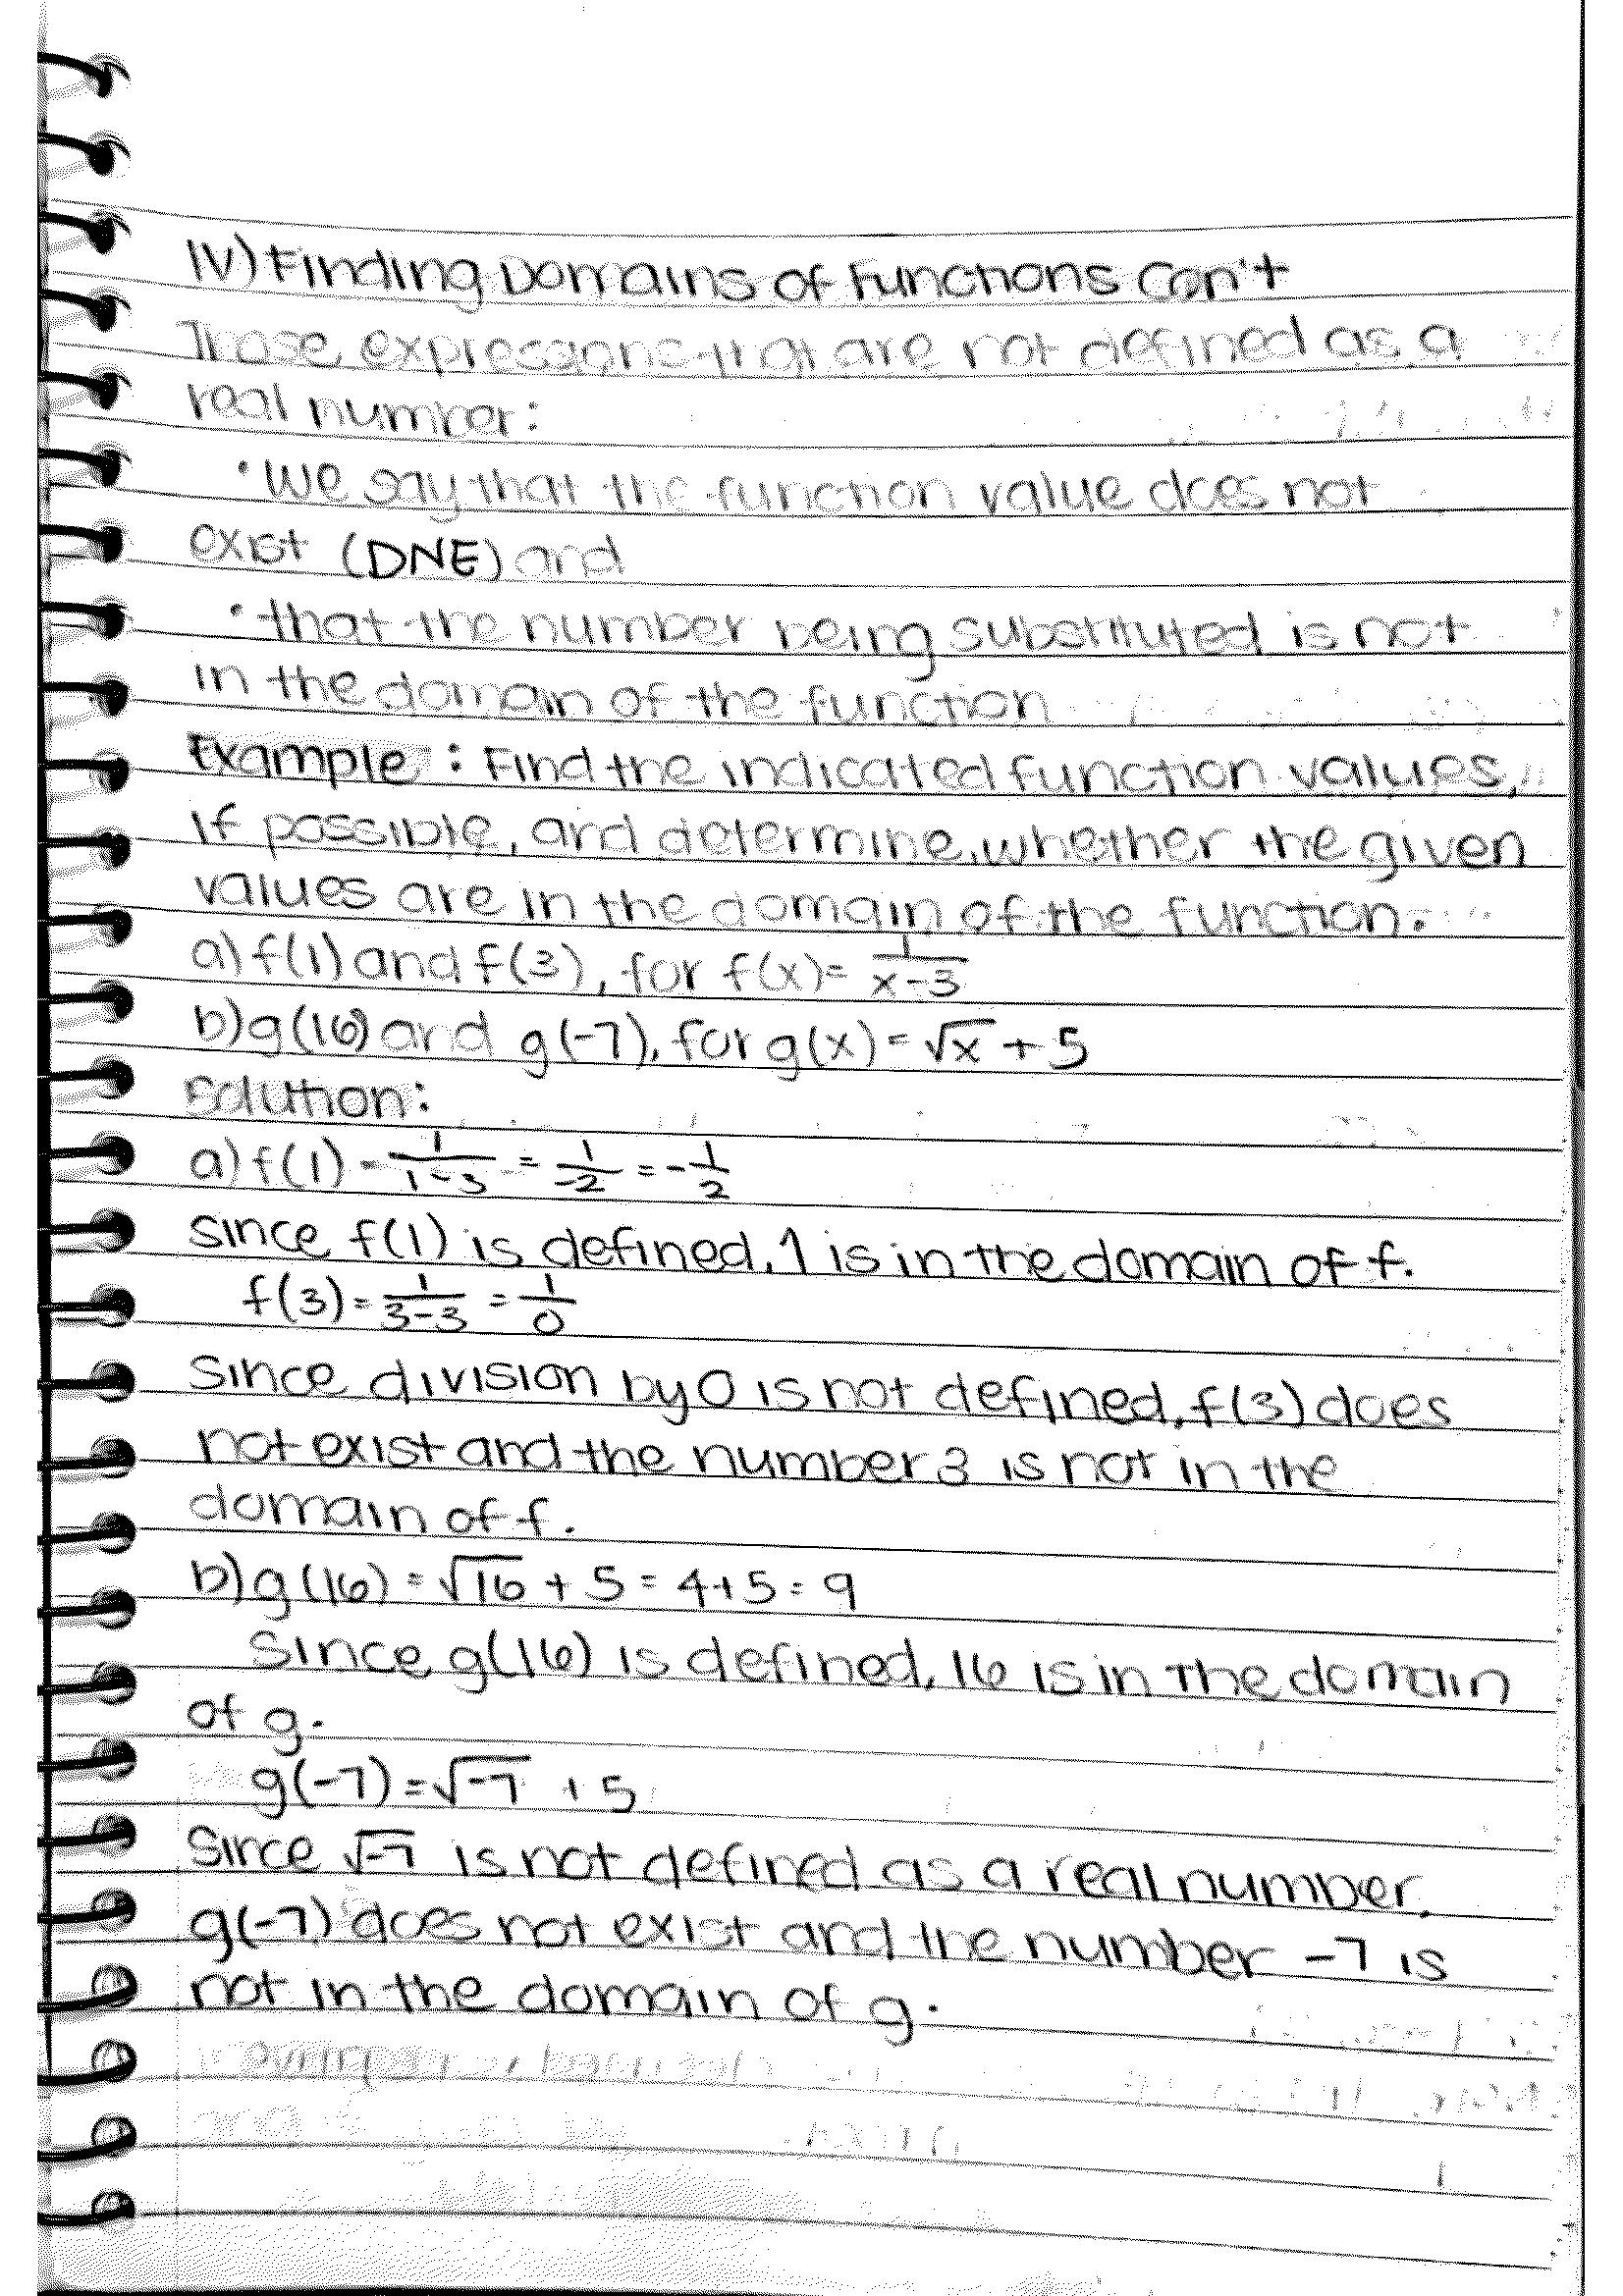 IV) Finding Domains of Functions Con't
Those expressions that are not defined as a
real number:
• We say that the function value does not
exist (DNE) and
• that the number being substituted is not
in the domain of the function
Example : Find the indicated function values,
if possible, and determine, whether the given
values are in the domain of the function.
a) f(1) and f(3), for f(x)= 1/(x-3)
b) g(16) and g(-7), for g(x) = √x + 5
Solution:
a) f(1) = 1/(1-3) = 1/-2 = -1/2
Since f(1) is defined, 1 is in the domain of f.
f(3) = 1/(3-3) = 1/0
Since division by 0 is not defined, f(3) does
not exist and the number 3 is not in the
domain of f.
b) g(16) = √16 + 5 = 4+5 = 9
Since g(16) is defined, 16 is in the domain
of g.
g(-7) = √-7 + 5
Since √-7 is not defined as a real number,
g(-7) does not exist and the number -7 is
not in the domain of g.